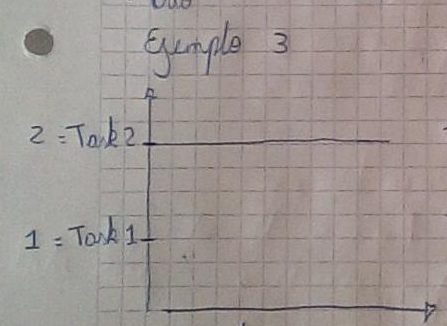 Ejemplo 3
2 = Task 2
1 = Task 1